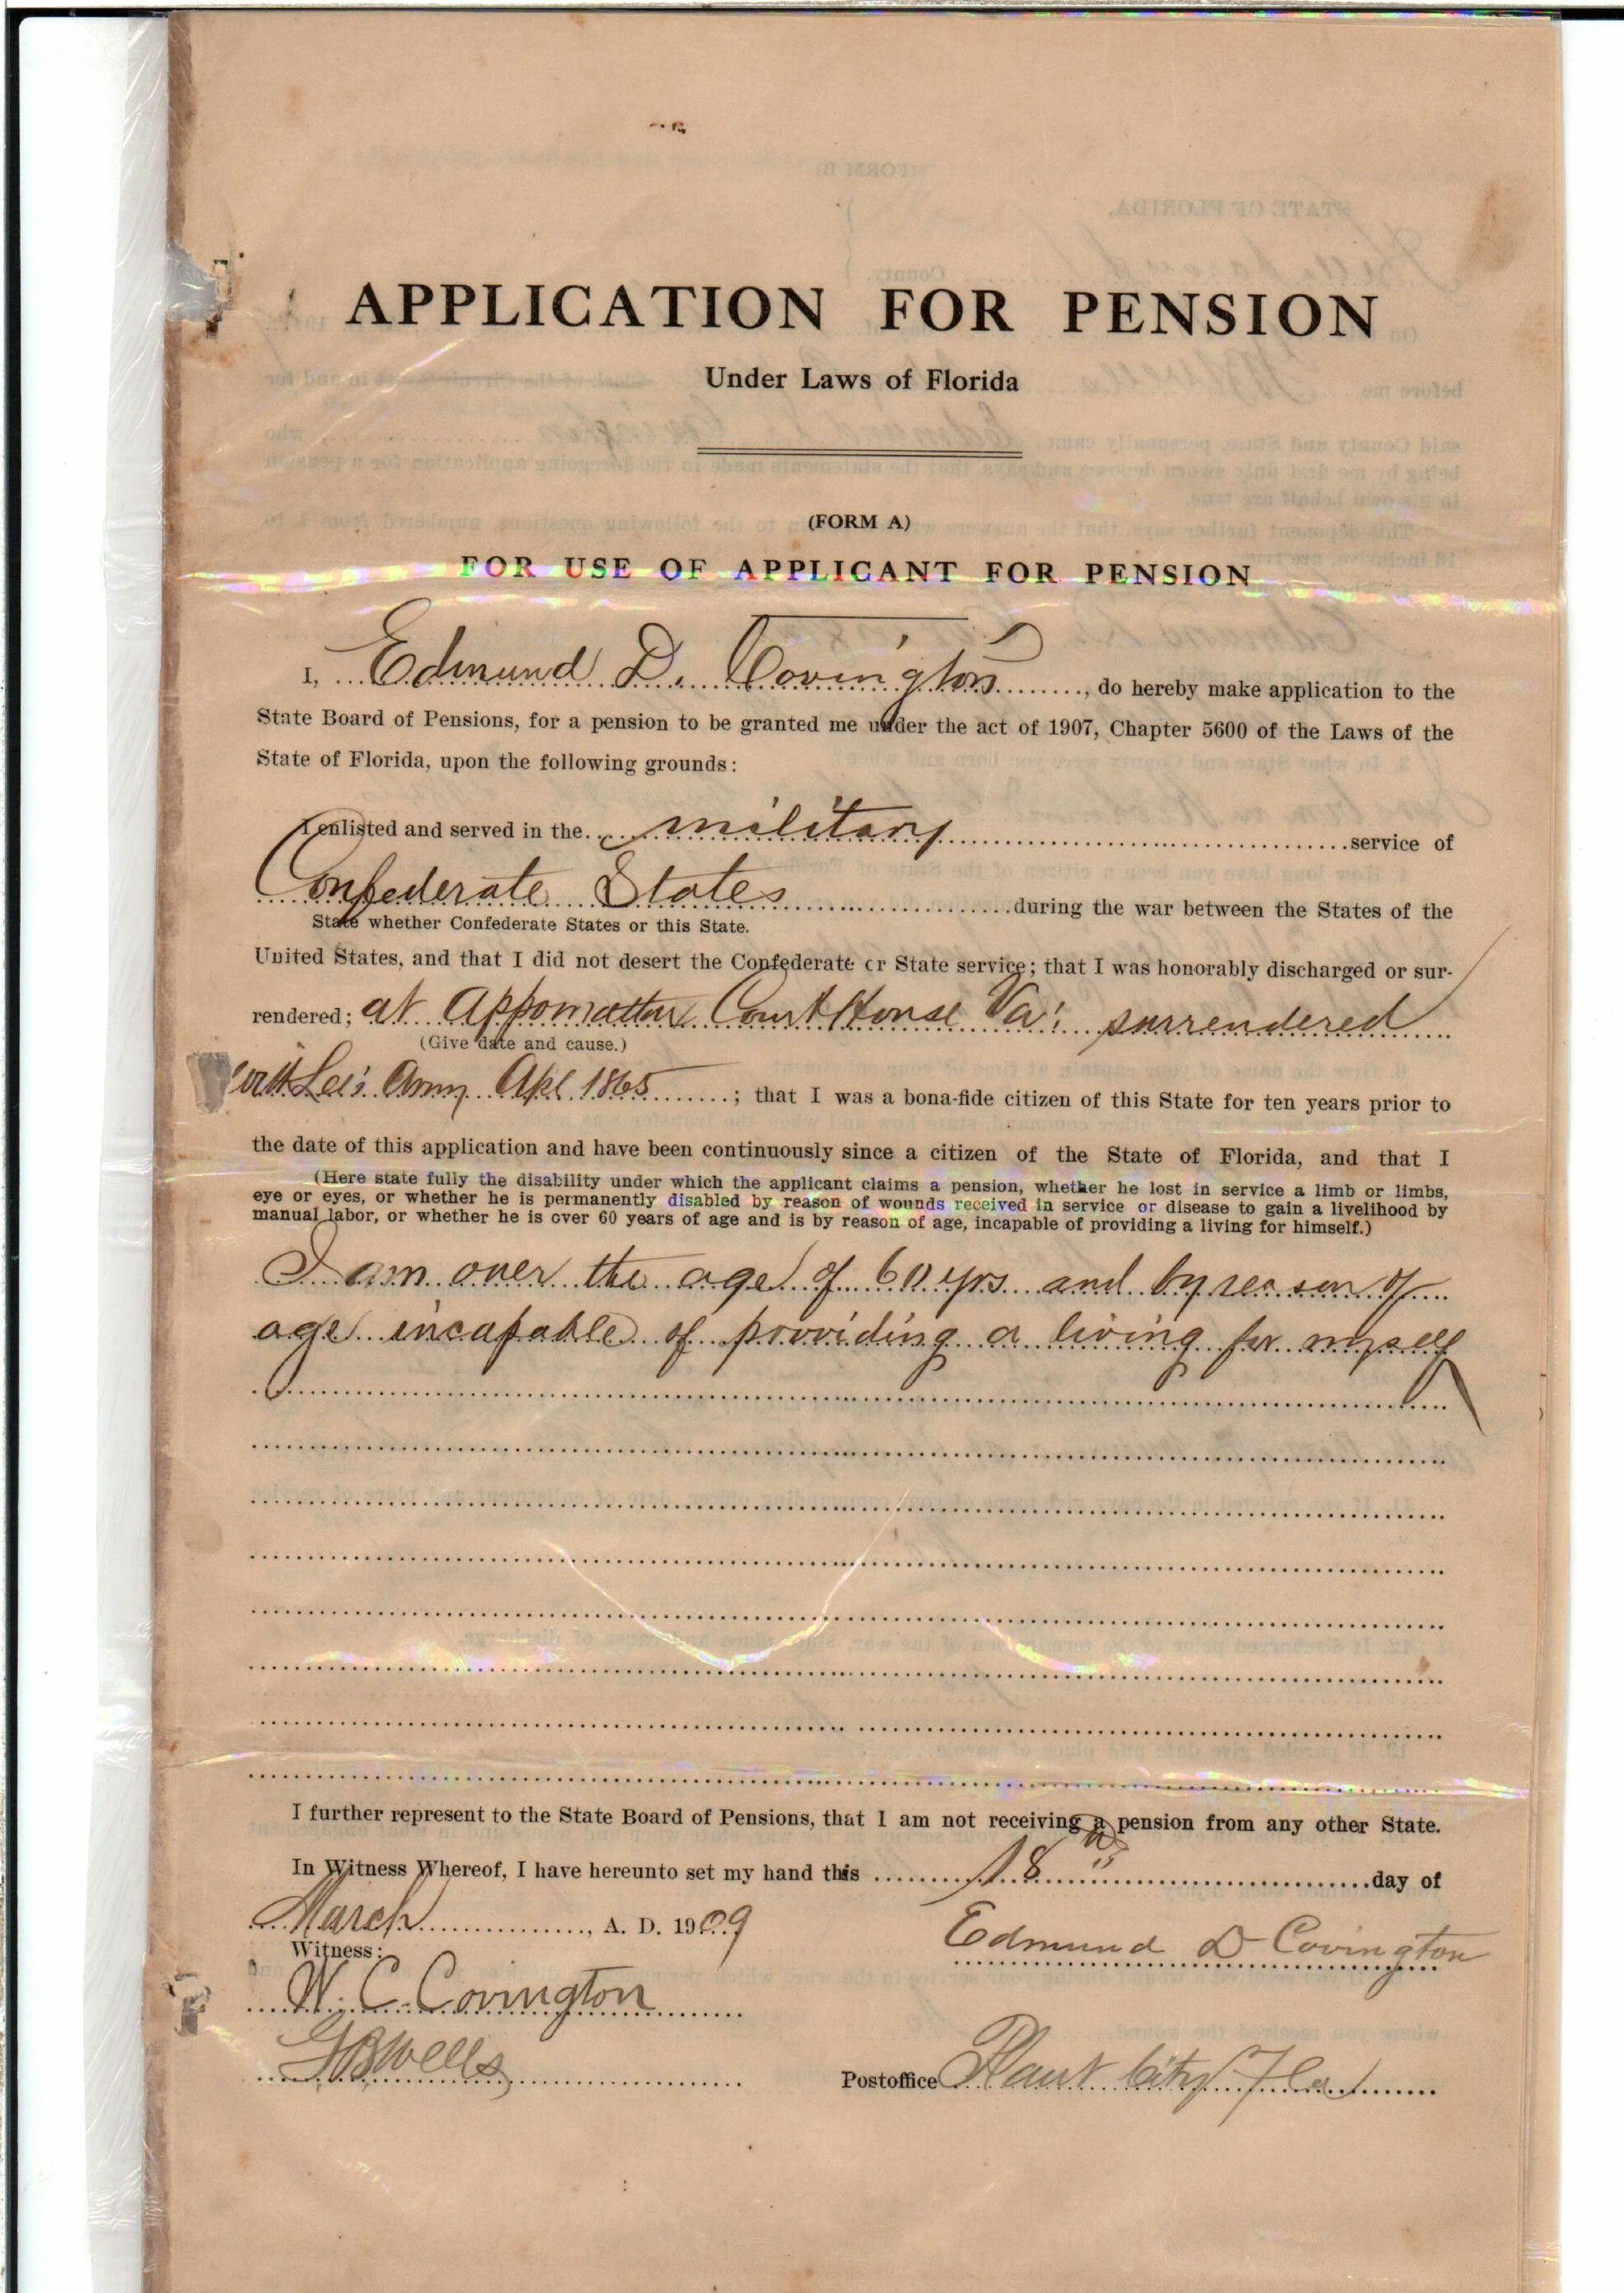 APPLICATION FOR PENSION
Under Laws of Florida
(FORM A)
FOR USE OF APPLICANT FOR PENSION
I, Edmund D. Covington, do hereby make application to the
State Board of Pensions, for a pension to be granted me under the act of 1907, Chapter 5600 of the Laws of the
State of Florida, upon the following grounds:
I enlisted and served in the military service of
Confederate States during the war between the States of the
State whether Confederate States or this State.
United States, and that I did not desert the Confederate or State service; that I was honorably discharged or sur-
rendered; at Appomattox Court House Va; surrendered
(Give date and cause.)
with Lee's Army Apl 1865; that I was a bona-fide citizen of this State for ten years prior to
the date of this application and have been continuously since a citizen of the State of Florida, and that I
(Here state fully the disability under which the applicant claims a pension, whether he lost in service a limb or limbs,
eye or eyes, or whether he is permanently disabled by reason of wounds received in service or disease to gain a livelihood by
manual labor, or whether he is over 60 years of age and is by reason of age, incapable of providing a living for himself.)
I am over the age of 60 yrs and by reason of
age incapable of providing a living for myself
I further represent to the State Board of Pensions, that I am not receiving a pension from any other State.
In Witness Whereof, I have hereunto set my hand this 18th day of
March, A. D. 1909 Edmund D Covington
Witness:
W. C. Covington
G B Wells Postoffice Plant City Fla